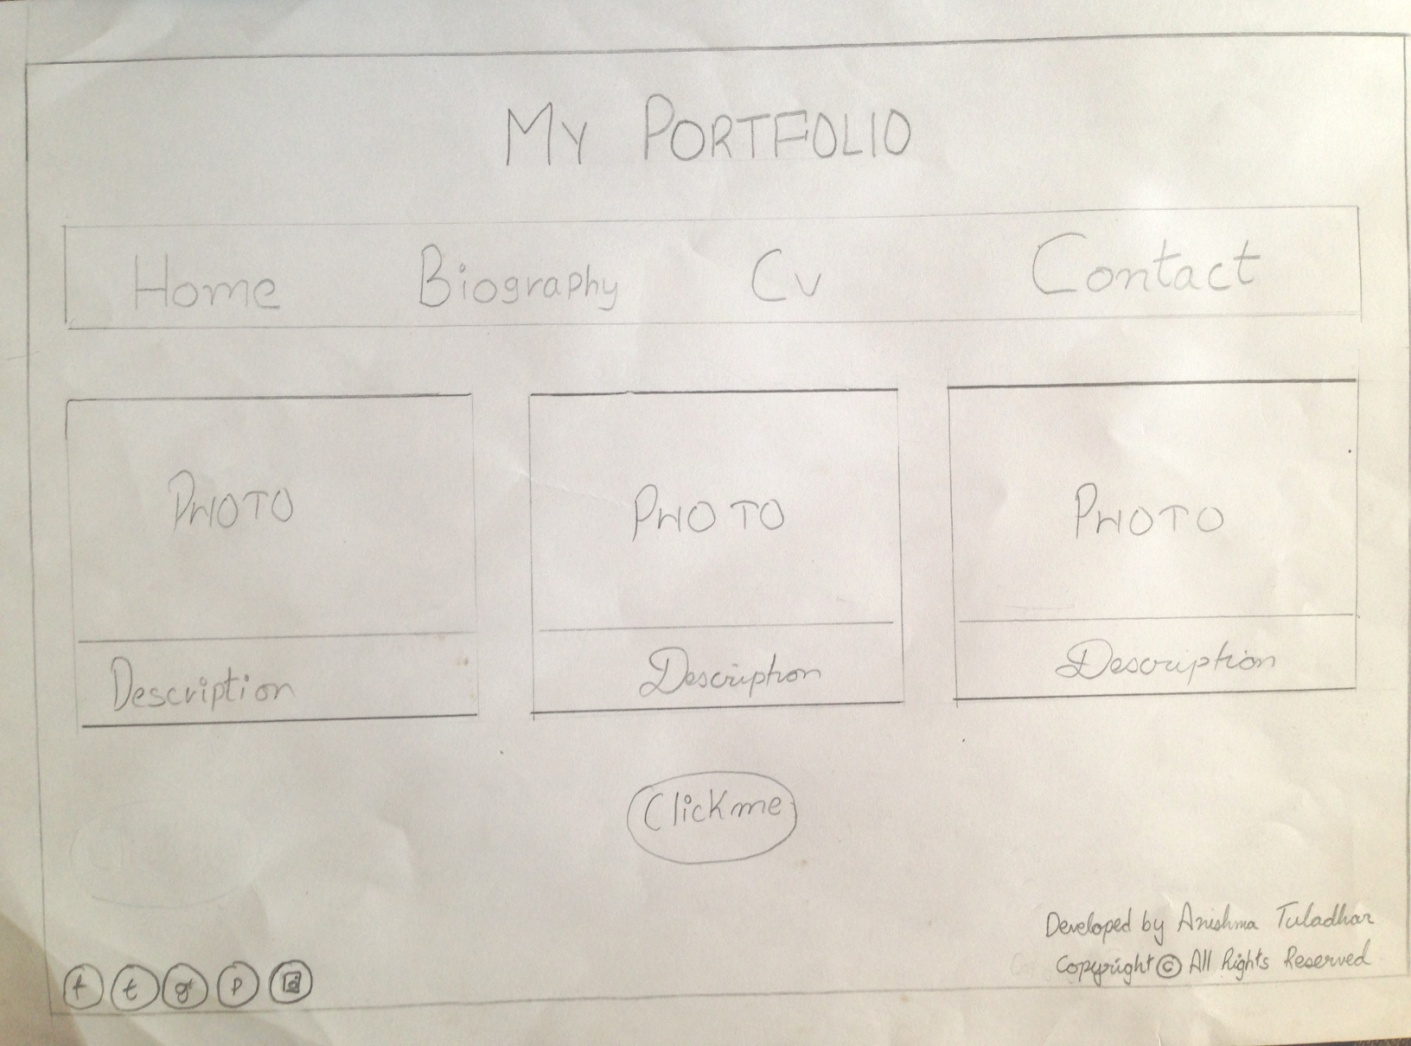 MY PORTFOLIO
Home Biography Cv Contact
PHOTO PHOTO PHOTO
Description Description Description
Click me
Developed by Anishma Tuladhar
Copyright © All Rights Reserved
f t g+ p